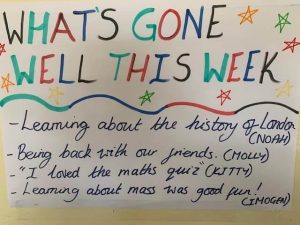 WHAT'S GONE
WELL THIS WEEK
- Learning about the history of London
(NOAH)
- Being back with our friends. (MOLLY)
- "I loved the maths quiz" (KITTY)
- Learning about mass was good fun!
(IMOGEN)